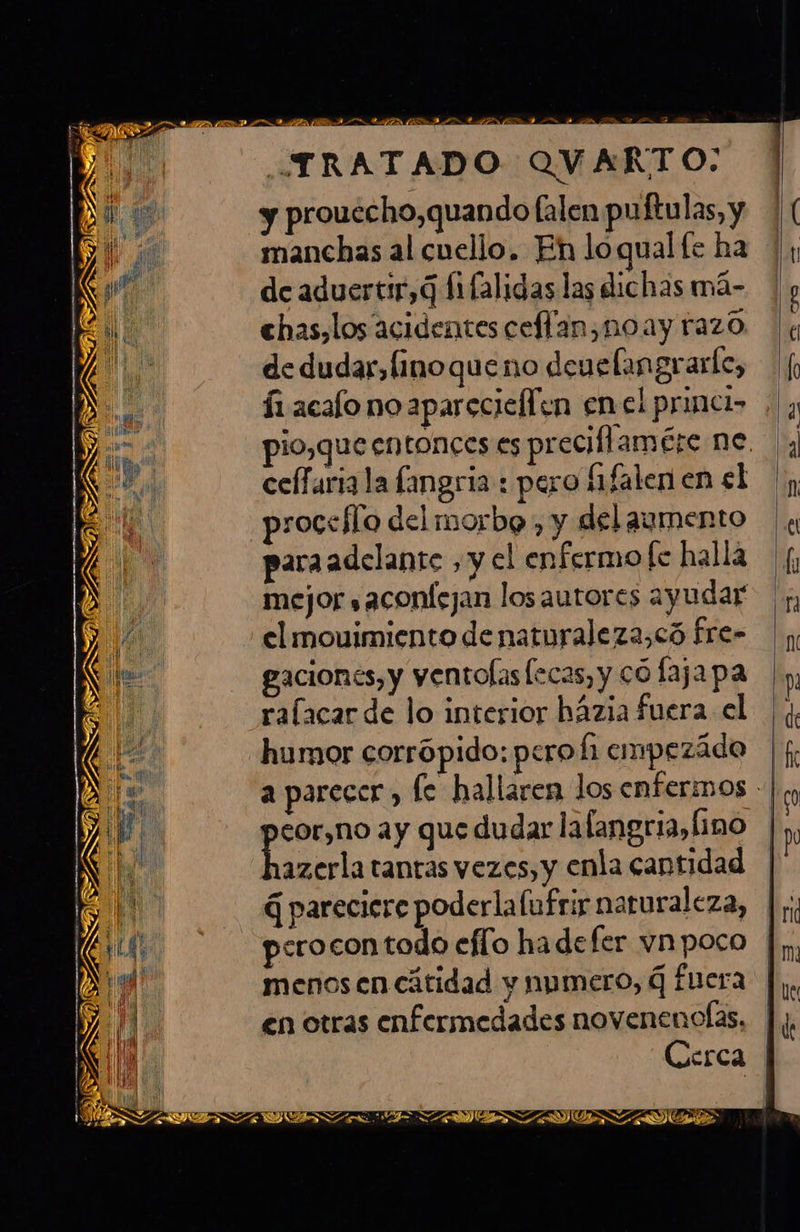 TRATADO QVARTO:
y prouecho,quando ſalen puſtulas,y
manchas al cuello. En loqual ſe ha
de aduertir,q̃ ſi ſalidas las dichas mã-
chas,los acidentes ceſſan,no ay razõ
de dudar,ſino que no deue ſangrarſe,
ſi acaſo no aparecieſſen en el princi-
pio,que entonces es preciſſamẽte ne
ceſſaria la ſangria : pero ſi ſalen en el
proceſſo del morbo , y del aumento
para adelante , y el enfermo ſe halla
mejor , aconſejan los autores ayudar
el mouimiento de naturaleza,cõ fre-
gaciones,y ventoſas ſecas,y cõ ſaja pa
ra ſacar de lo interior házia fuera el
humor corrõpido: pero ſi empezãdo
a parecer , ſe hallaren los enfermos
peor,no ay que dudar la ſangria,ſino
hazerla tantas vezes,y en la cantidad
q̃ pareciere poderla ſufrir naturaleza,
pero con todo eſſo ha de ſer vn poco
menos en cãtidad y numero, q̃ fuera
en otras enfermedades no venenoſas.
Cerca